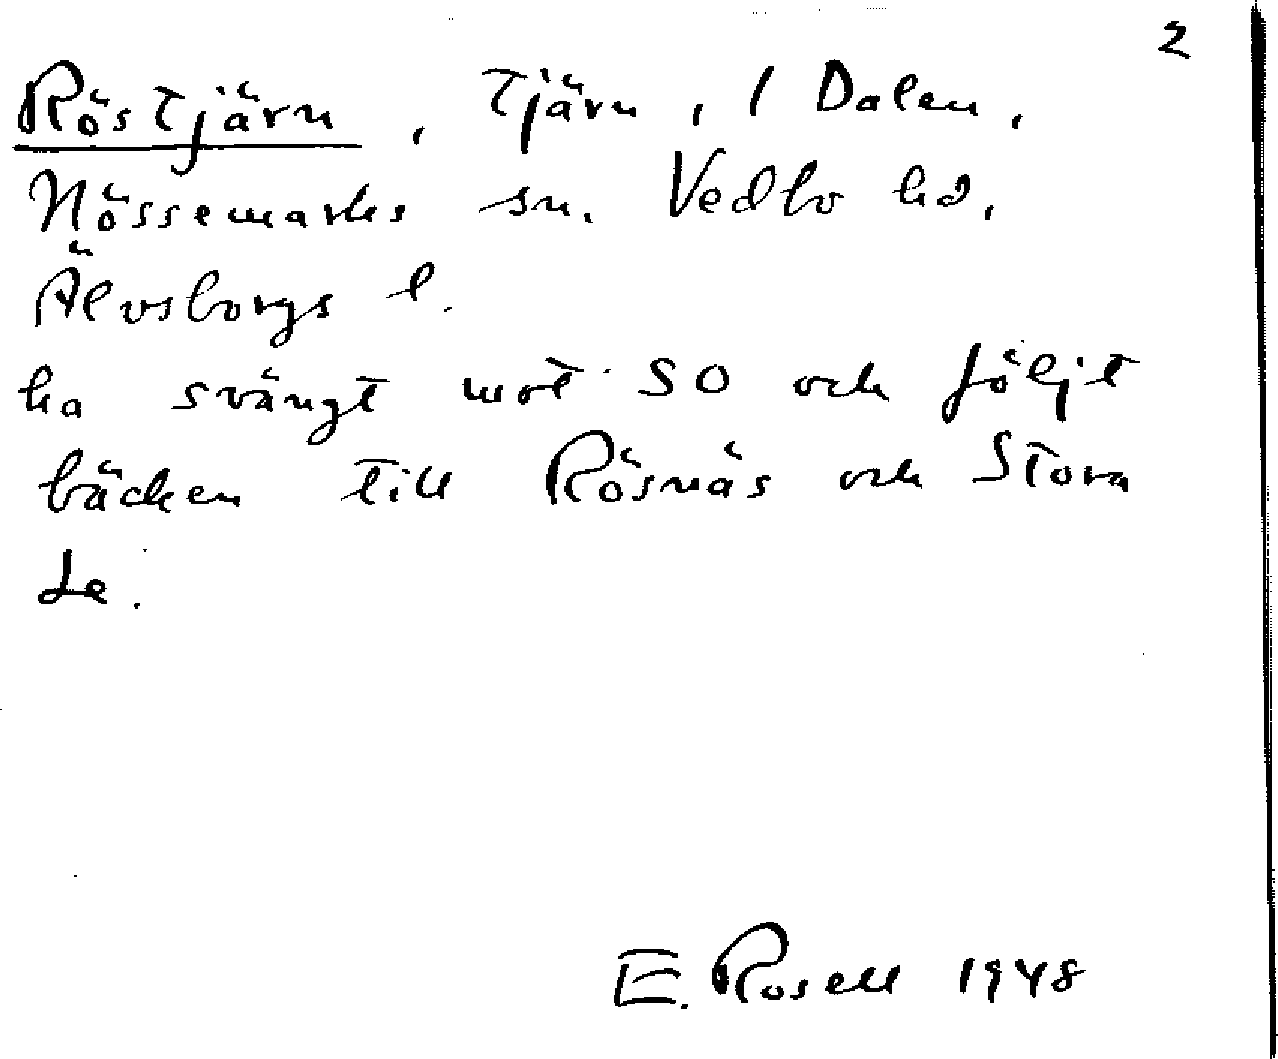 2
Röstjärn, tjärn, 1 Dalen,
Nössemarks sn. Vedbo hd,
Älvsborgs l.
ha svängt mot SO och följt
bäcken till Rösnäs och Stora
Le.
E. Rosell 1948